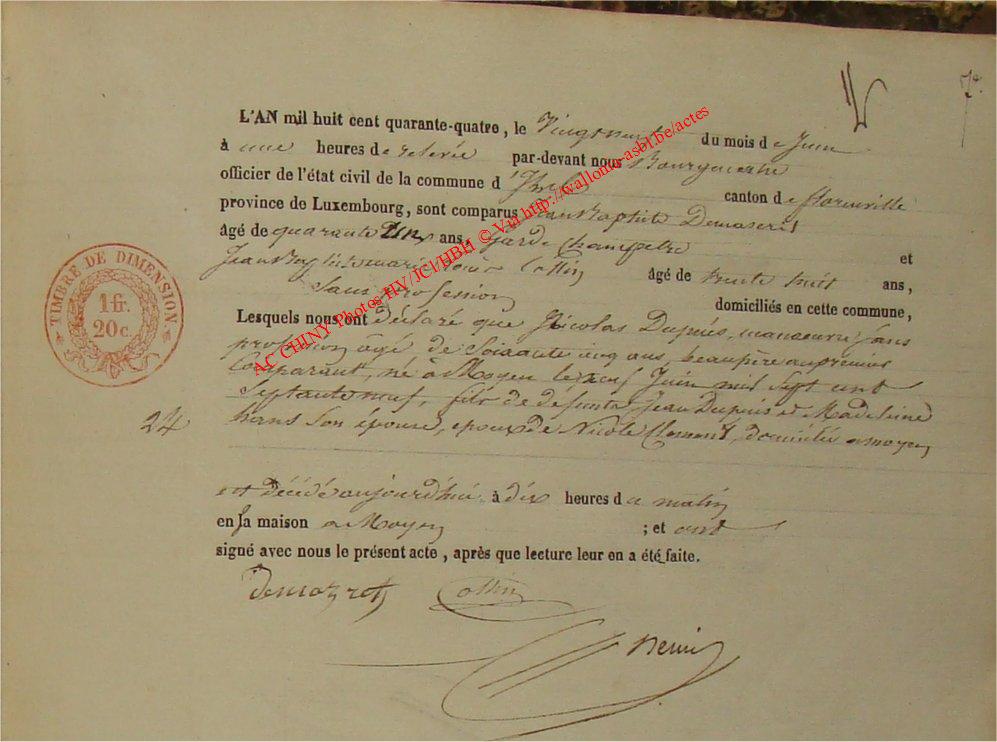 7e
L'AN mil huit cent quarante-quatre, le Vingt neuf du mois de Juin
à une heures de relevée par-devant nous Bourgmestre
officier de l'état civil de la commune d'Izel canton de florenville
province de Luxembourg, sont comparus Jean Baptiste Demaseret
âgé de quarante ans, garde champetre et
Jean Baptiste marie Collin âgé de trente huit ans,
Sans profession domiciliés en cette commune,
Lesquels nous ont déclaré que Nicolas Dupuis, manoeuvre sans
profession, agé de Soixante cinq ans, beaupère au premier
Comparant, né à Moyen le neuf Juin mil Sept cent
Septante neuf, fils de defunts Jean Dupuis et Madeleine
hans Son épouse, epoux de Nicole Clement, domicilié a moyen
24
est décédé aujourd'hui à dix heures du matin
en sa maison a Moyen ; et ont
signé avec nous le présent acte, après que lecture leur en a été faite.
Demazret Collin
TIMBRE DE DIMENSION
1 fr.
20 c.
AC CHINY Photos HY/JCl/HBH © Via http://wallonia-asbl.be/actes